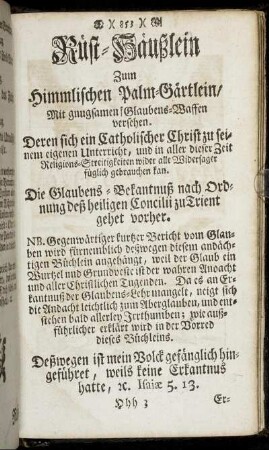 )( 853 )(
Rüst-Häußlein
Zum
Himmlischen Palm-Gärtlein/
Mit gnugsamen Glaubens-Waffen
versehen.
Deren sich ein Catholischer Christ zu sei-
nem eigenen Unterricht, und in aller dieser Zeit
Religions-Streitigkeiten wider alle Widersager
füglich gebrauchen kan.
Die Glaubens-Bekantnuß nach Ord-
nung deß heiligen Concilii zu Trient
gehet vorher.
NB. Gegenwärtiger kurtzer Bericht vom Glau-
ben wird fürnemblich deßwegen diesem andäch-
tigen Büchlein angehängt, weil der Glaub ein
Wurtzel und Grundveste ist der wahren Andacht
und aller Christlichen Tugenden. Da es an Er-
kantnuß der Glaubens-Lehr mangelt, neigt sich
die Andacht leichtlich zum Aberglauben, und ent-
stehen bald allerley Irrthumben; wie auß-
führlicher erklärt wird in der Vorred
dieses Büchleins.
Deßwegen ist mein Volck gefänglich hin-
geführet, weils keine Erkantnus
hatte, ꝛc. Isaiæ 5. 13.
Hhh 3 Er-